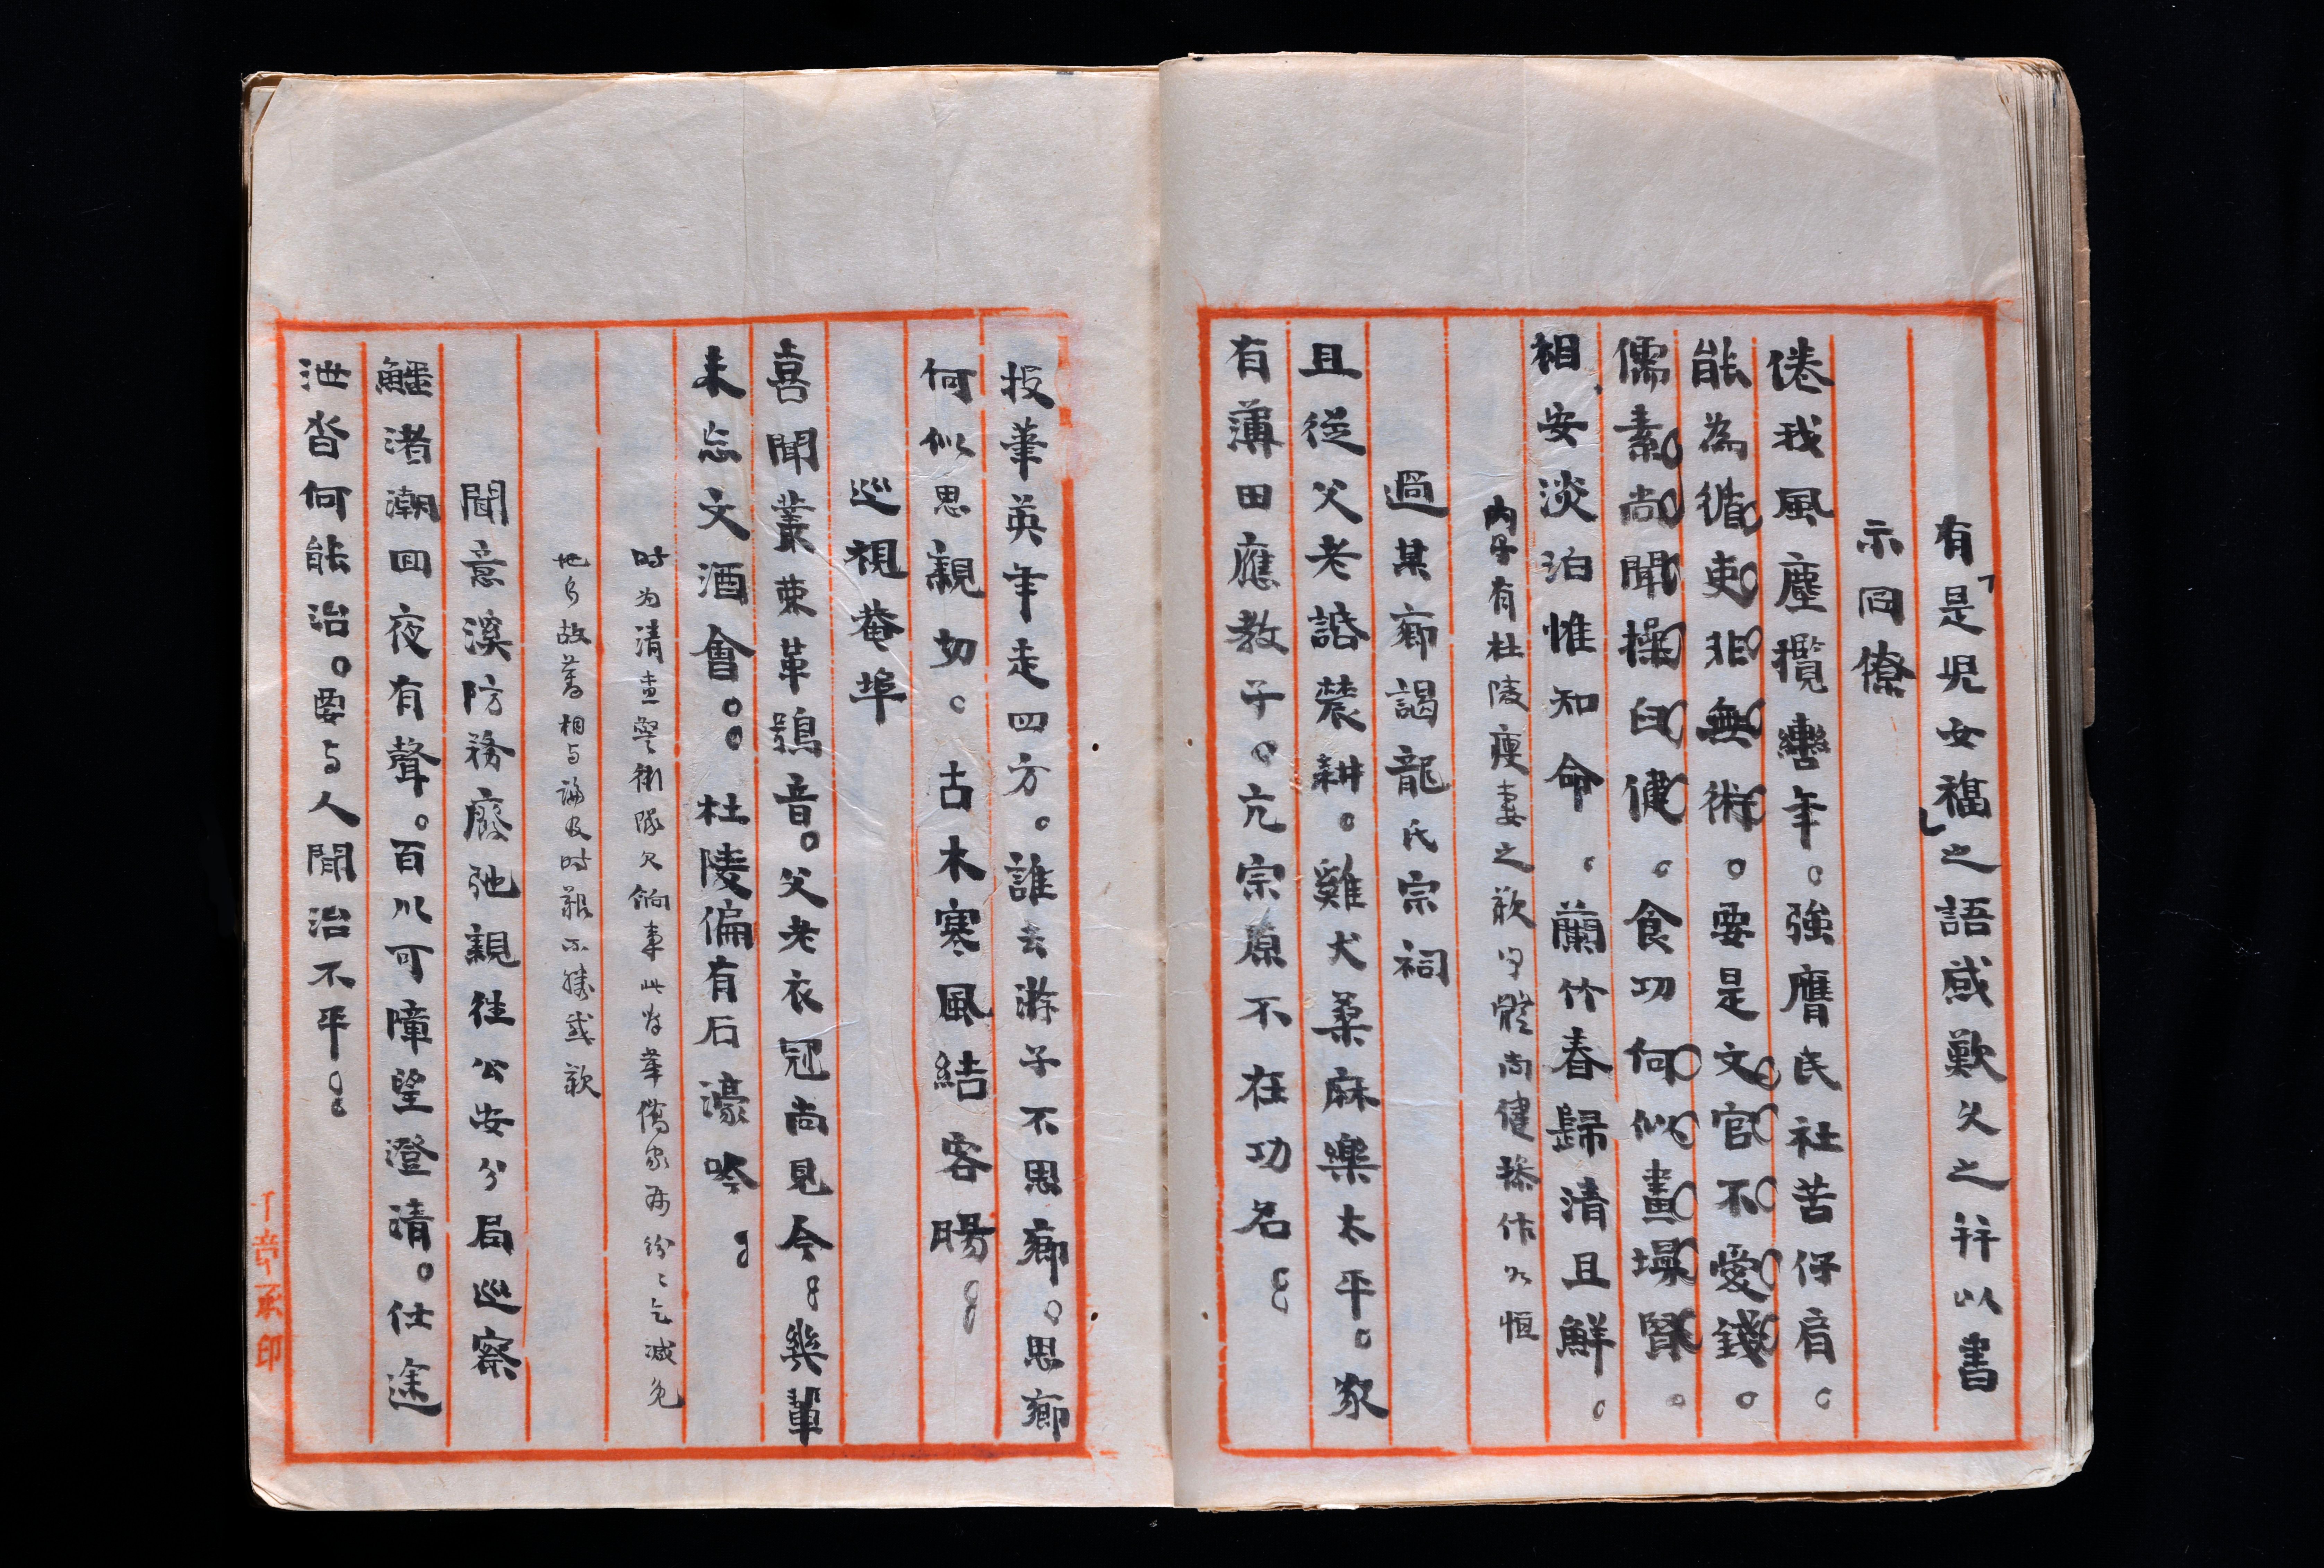 有「是児女福」之語感歎久之并以書
示同僚
倦我風塵攬轡年。強膺民社苦仔肩。
能為循吏非無術。要是文官不愛錢。
儒素尚聞操臼健。食功何似畫墁賢。
相安淡泊惟知命。蘭竹春歸清且鮮。
內子有杜陵瘦妻之歎中體尚健操作如恒
過某鄉謁龍氏宗祠
且從父老話農耕。雞犬桑麻樂太平。家
有薄田應教子。亢宗原不在功名。
投筆英年走四方。誰言游子不思鄉。思鄉
何似思親切。古木寒風結客腸。
巡視菴埠
喜聞叢棘革鴞音。父老衣冠尚見今。幾輩
未忘文酒會。杜陵偏有石濠吟。
时为清查警衛隊欠餉事此 華僑家 紛紛乞减免
他身故舊相与論及时艱不勝感歎
聞意溪防務廢弛親往公安分局巡察
鱷渚潮回夜有聲。百川可障望澄清。仕途
泄沓何能治。要与人間治不平。
承印